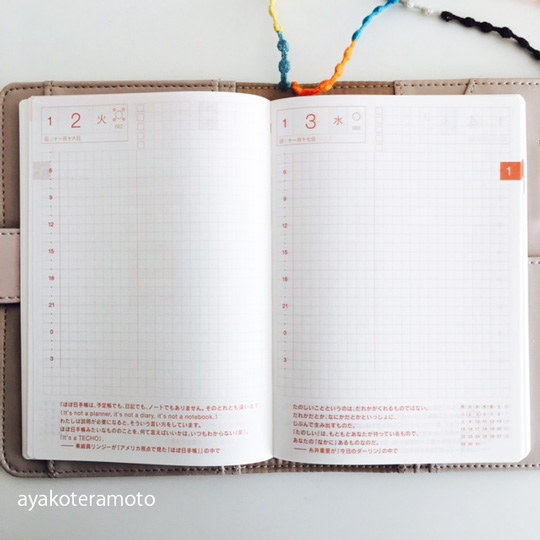 1 2 火
1 3 水
1
6
9
12
15
18
21
0
3
6
9
12
15
18
21
0
3
「ほぼ日手帳は、予定帳でも、日記でも、ノートでもありません。そのどれとも違います
(it's not a planner, it's not a diary, it's not a notebook.)
わしは説明が必要になると、そういう言い方をしています。
ほぼ日手帳みたいなもののことを、何て言えばいいかは、いつもわからない(笑)。
「It's a TECHO」
── 乗組員リンジーが『アメリカ視点で見た「ほぼ日手帳」』の中で
たのしいことというのは、だれかがくれるものではない。
だれかだとか、なにかだとかといっしょに、
じぶんで生み出すものだ。
「たのしい」は、もともとあなたが持っているもので、
あなたの「なかに」あるものなのだ。
── 糸井重里が『今日のダーリン』の中で
ayakoteramoto